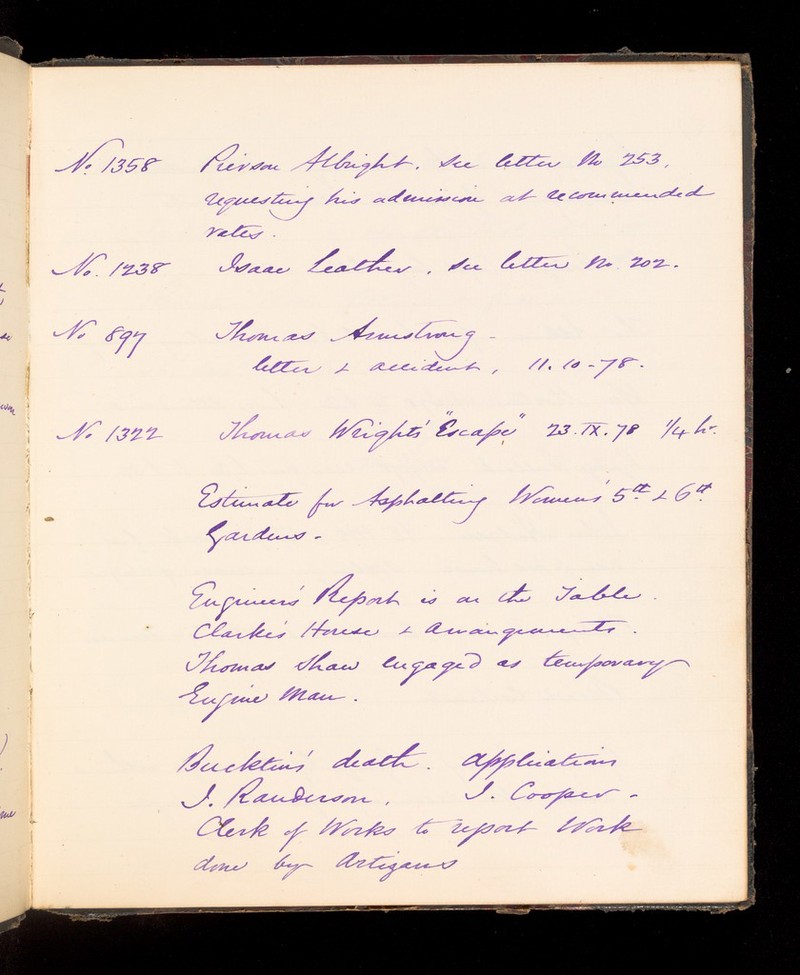 No. 1358 Pierson Albright. See letter No 253,
requesting his admission at recommended
rates.
No. 1238 Isaac Leather, see letter No. 202.
No 897 Thomas Armstrong -
letter & accident, 11.10-78.
No 1322 Thomas Wright's "Escape" 23.IX.78 1/4 hr.
Estimate for Asphalting Women's 5th & 6th
Gardens -
Engineer's Report is on the Table.
Clarke's House & Arrangements.
Thomas Shaw engaged as temporary
Engine Man.
Bucktin's death. applications
J. Randerson. J. Cooper -
Clerk of Works to report Work
done by Artizans